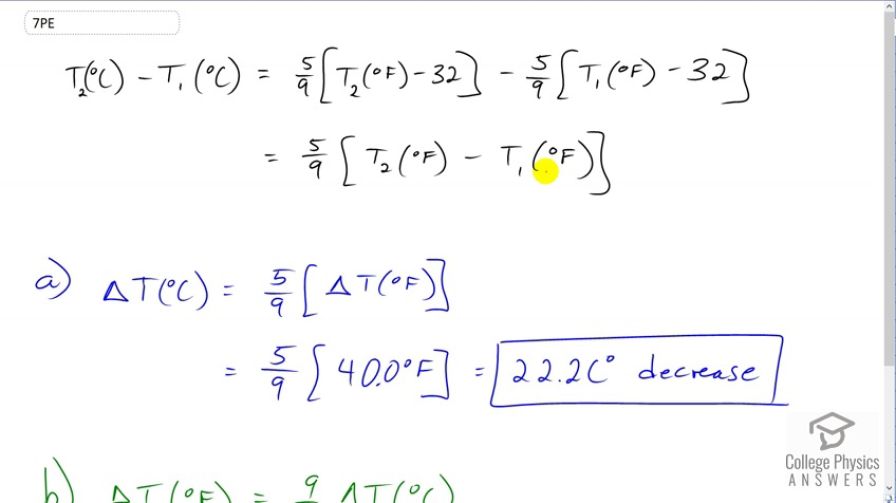 7PE
T₂(°C) – T₁(°C) = 5/9 [T₂(°F) – 32] – 5/9 [T₁(°F) – 32]
= 5/9 [T₂(°F) – T₁(°F)]
a) ΔT(°C) = 5/9 [ΔT(°F)]
= 5/9 [40.0°F] = 22.2C° decrease
b) ΔT(°F) = 9 ΔT(°C)
College Physics
ANSWERS